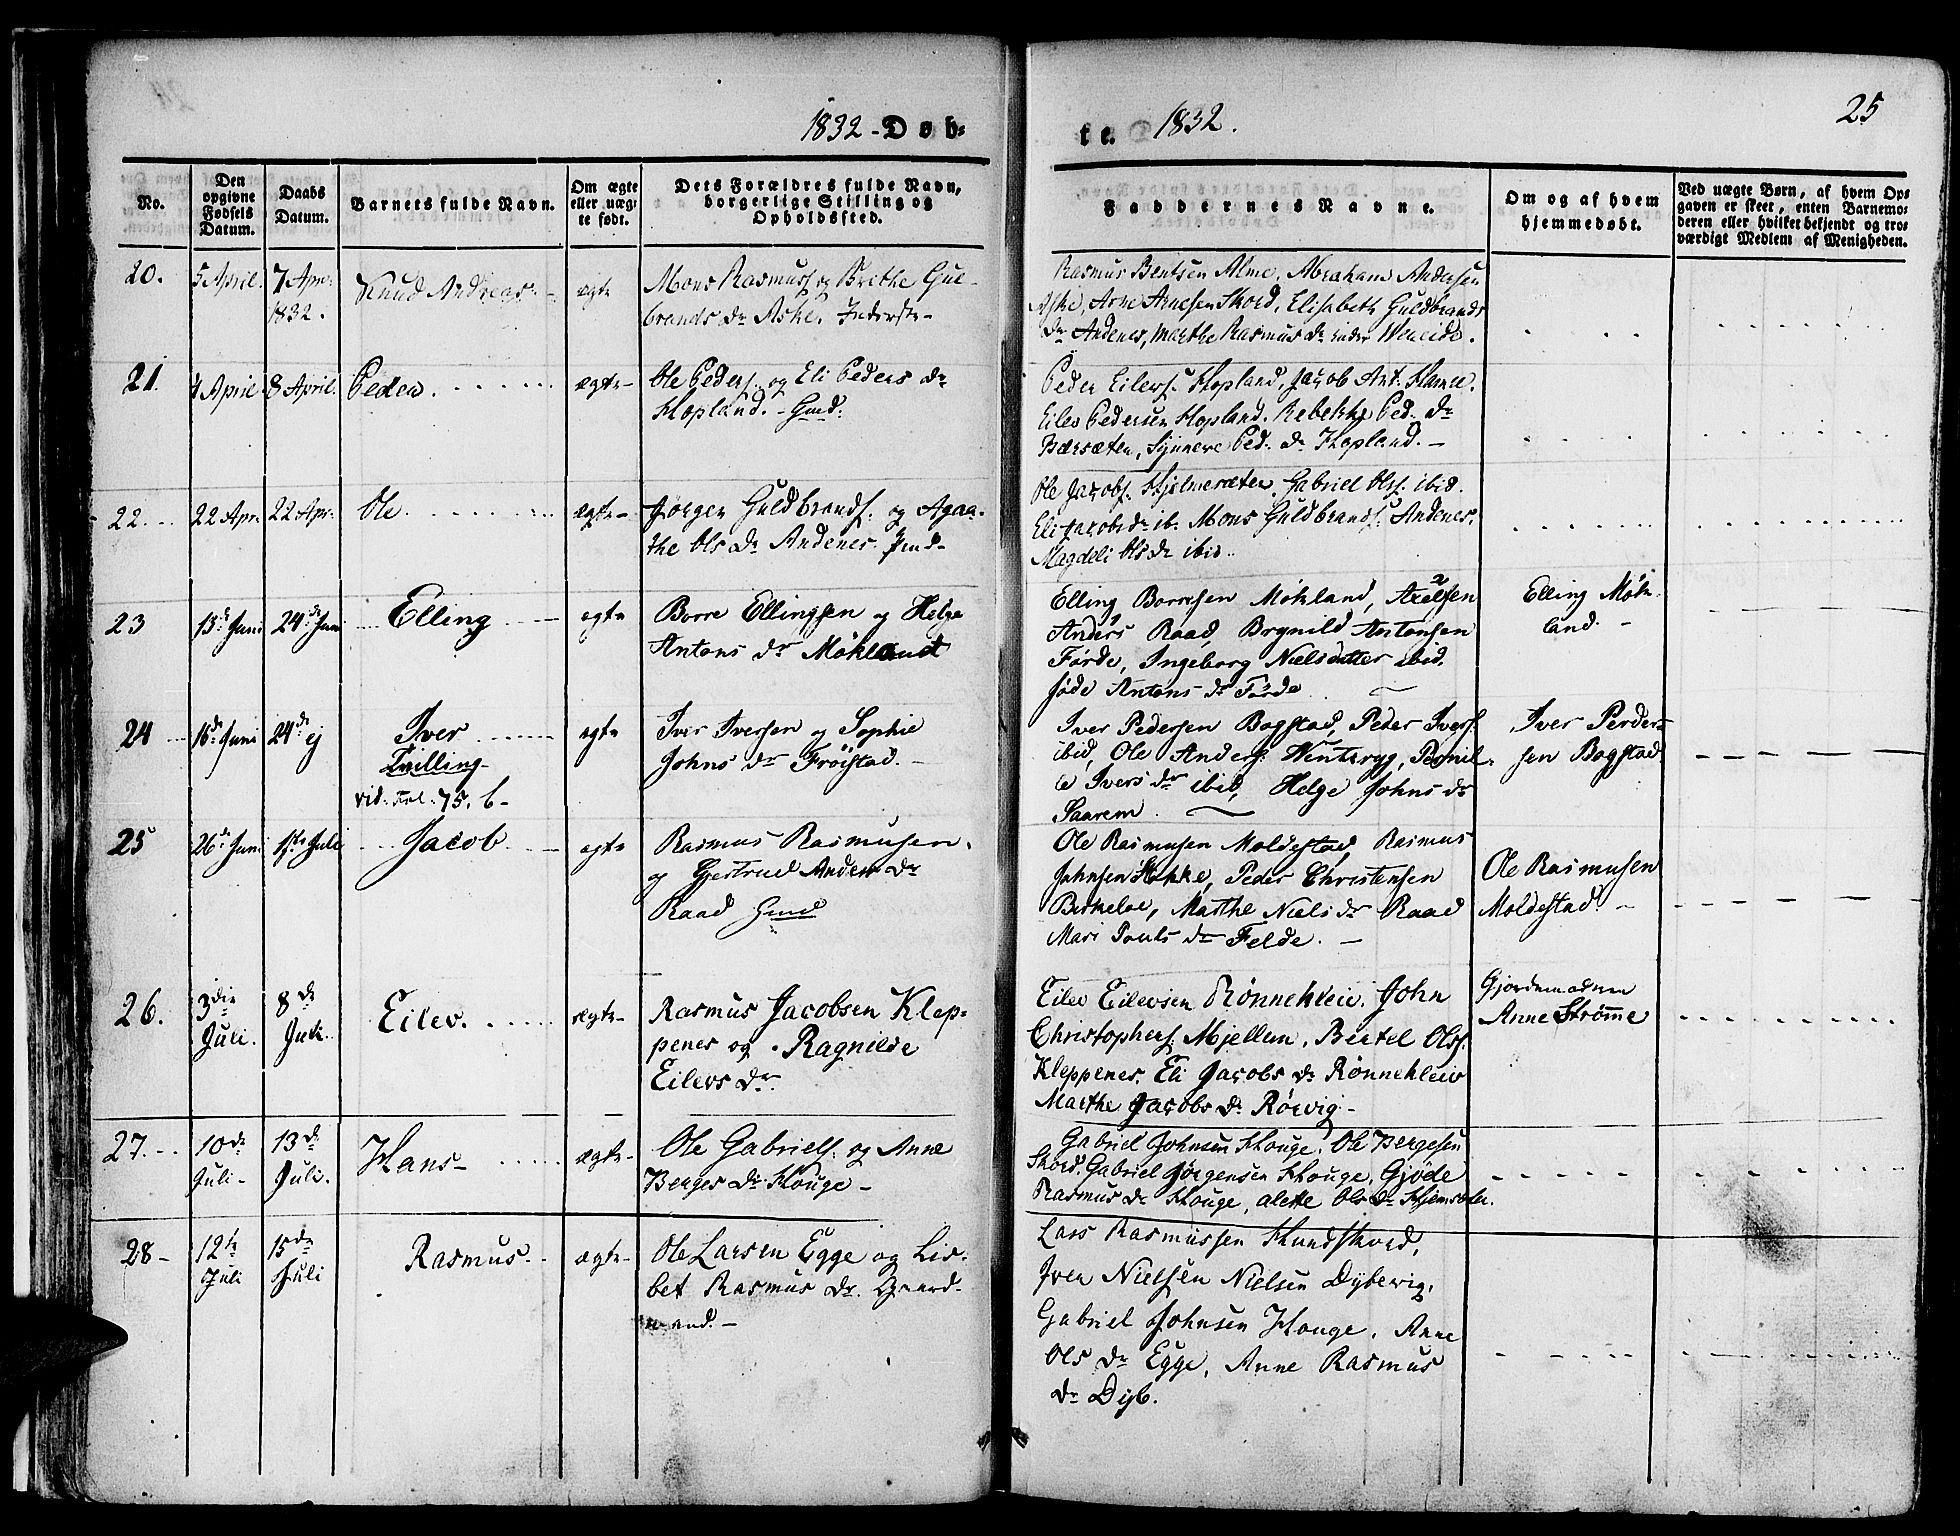 1832 - Døb-
te. 1832.
25
No.
Den opgivne Fødsels Datum.
Daabs Datum.
Barnets fulde Navn.
Om ægte eller uægte født.
Dets Forældres fulde Navn, borgerlige Stilling og Opholdssted.
Faddernes Navne.
Om og af hvem hjemmedøbt.
Ved uægte Børn, af hvem Opgaven er skeet, enten Barnemoderen eller hvilket bekjendt og troværdigt Medlem af Menigheden.
20.
5 April.
7 Apr:
1832.
Knud Andreas
ægte
Mons Rasmuss: og Brithe Gul-
brands Dr Aske. Inderste -
Rasmus Bentsen Alme, Abraham Andersen
Aske, Arne Arnesen Skord, Elisabeth Guldbrands
Dr Andenes, Marthe Rasmus Dr
21.
7 April
8 April.
Peder
ægte -
Ole Peders. og Eli Peders Dr
Hopland. - Gmd:
Peder Eilers. Hopland, Jacob Ant: Hamre.
Eilev Pedersen Hopland. Rebekke Ped: Dr
Bærsæten, Synneve Ped: Dr Hopland. -
22.
22 Apr:
22 Apr:
Ole.
ægte -
Jørgen Guldbrands: og Agaa-
the Ols Dr Andenes.
Ole Jacobs. Hjelmesæter. Gabriel Ols. ibid.
Eli Jacobs dr ib. Mons Guldbrands. Andenes.
Magdeli Ols Dr ibid.
23
13de Juni
24de Juni
Elling
egte
Borre Ellingsen og Helge
Antons Dr Møkland
Elling Borresen Møkland, Axelsen
Anders Raad, Brynild Antonsen
Førde, Ingeborg Nielsdatter ibid.
Jøde Antons Dr Førde.
Elling Møk-
land. -
24
16de Juni
24de ej
Iver
Tvilling
vid. Fol. 75. b -
egte
Iver Iversen og Sophie
Johns Dr Frøistad. -
Iver Pedersen Bogstad, Peder Ivers.
ibid, Ole Anders: Wenteryg, Pernil-
le Ivers Dr ibid, Helge Johns Dr
Saarem.
Iver Peder-
sen Bogstad
25
26de Juni
1ste Juli
Jacob
egte
Rasmus Rasmusen
og Gjertrud Anders Dr
Raad Gmd
Ole Rasmusen Moldestad, Rasmus
Johnsen Hokke, Peder Christensen
Birkeloe, Marthe Niels Dr Raad
Mari Pouls Dr Felde. -
Ole Rasmusen
Moldestad. -
26.
3die
Juli.
8de
Juli.
Eilev.
ægte -
Rasmus Jacobsen Klep-
penes og Ragnilde
Eilevs Dr.
Eilev Eilevsen Rønnekleiv. John
Christophers. Mjellem. Bertel Ols.
Kleppenes. Eli Jacobs Dr Rønnekleiv
Marthe Jacobs Dr Rørvig -
Gjordemoderen
Anne Strømme
27.
10de
Juli -
13de
Juli.
Hans -
ægte -
Ole Gabriels. og Anne
Berges Dr Houge -
Gabriel Johnsen Houge. Ole Bergesen
Skord. Gabriel Jørgensen Houge, Gjøde
Rasmus Dr Houge, Alette Ols Dr
28 -
12te
Juli
15de
Juli
Rasmus.
ægte -
Ole Larsen Egge og Lis-
bet Rasmus Dr. Gaard-
mand. -
Lars Rasmussen Hundskord,
Iver Nielsen Nielsen Dybevig,
Gabriel Johnsen Houge. Anne
Ols Dr Egge, Anne Rasmus
Dr Dyb.